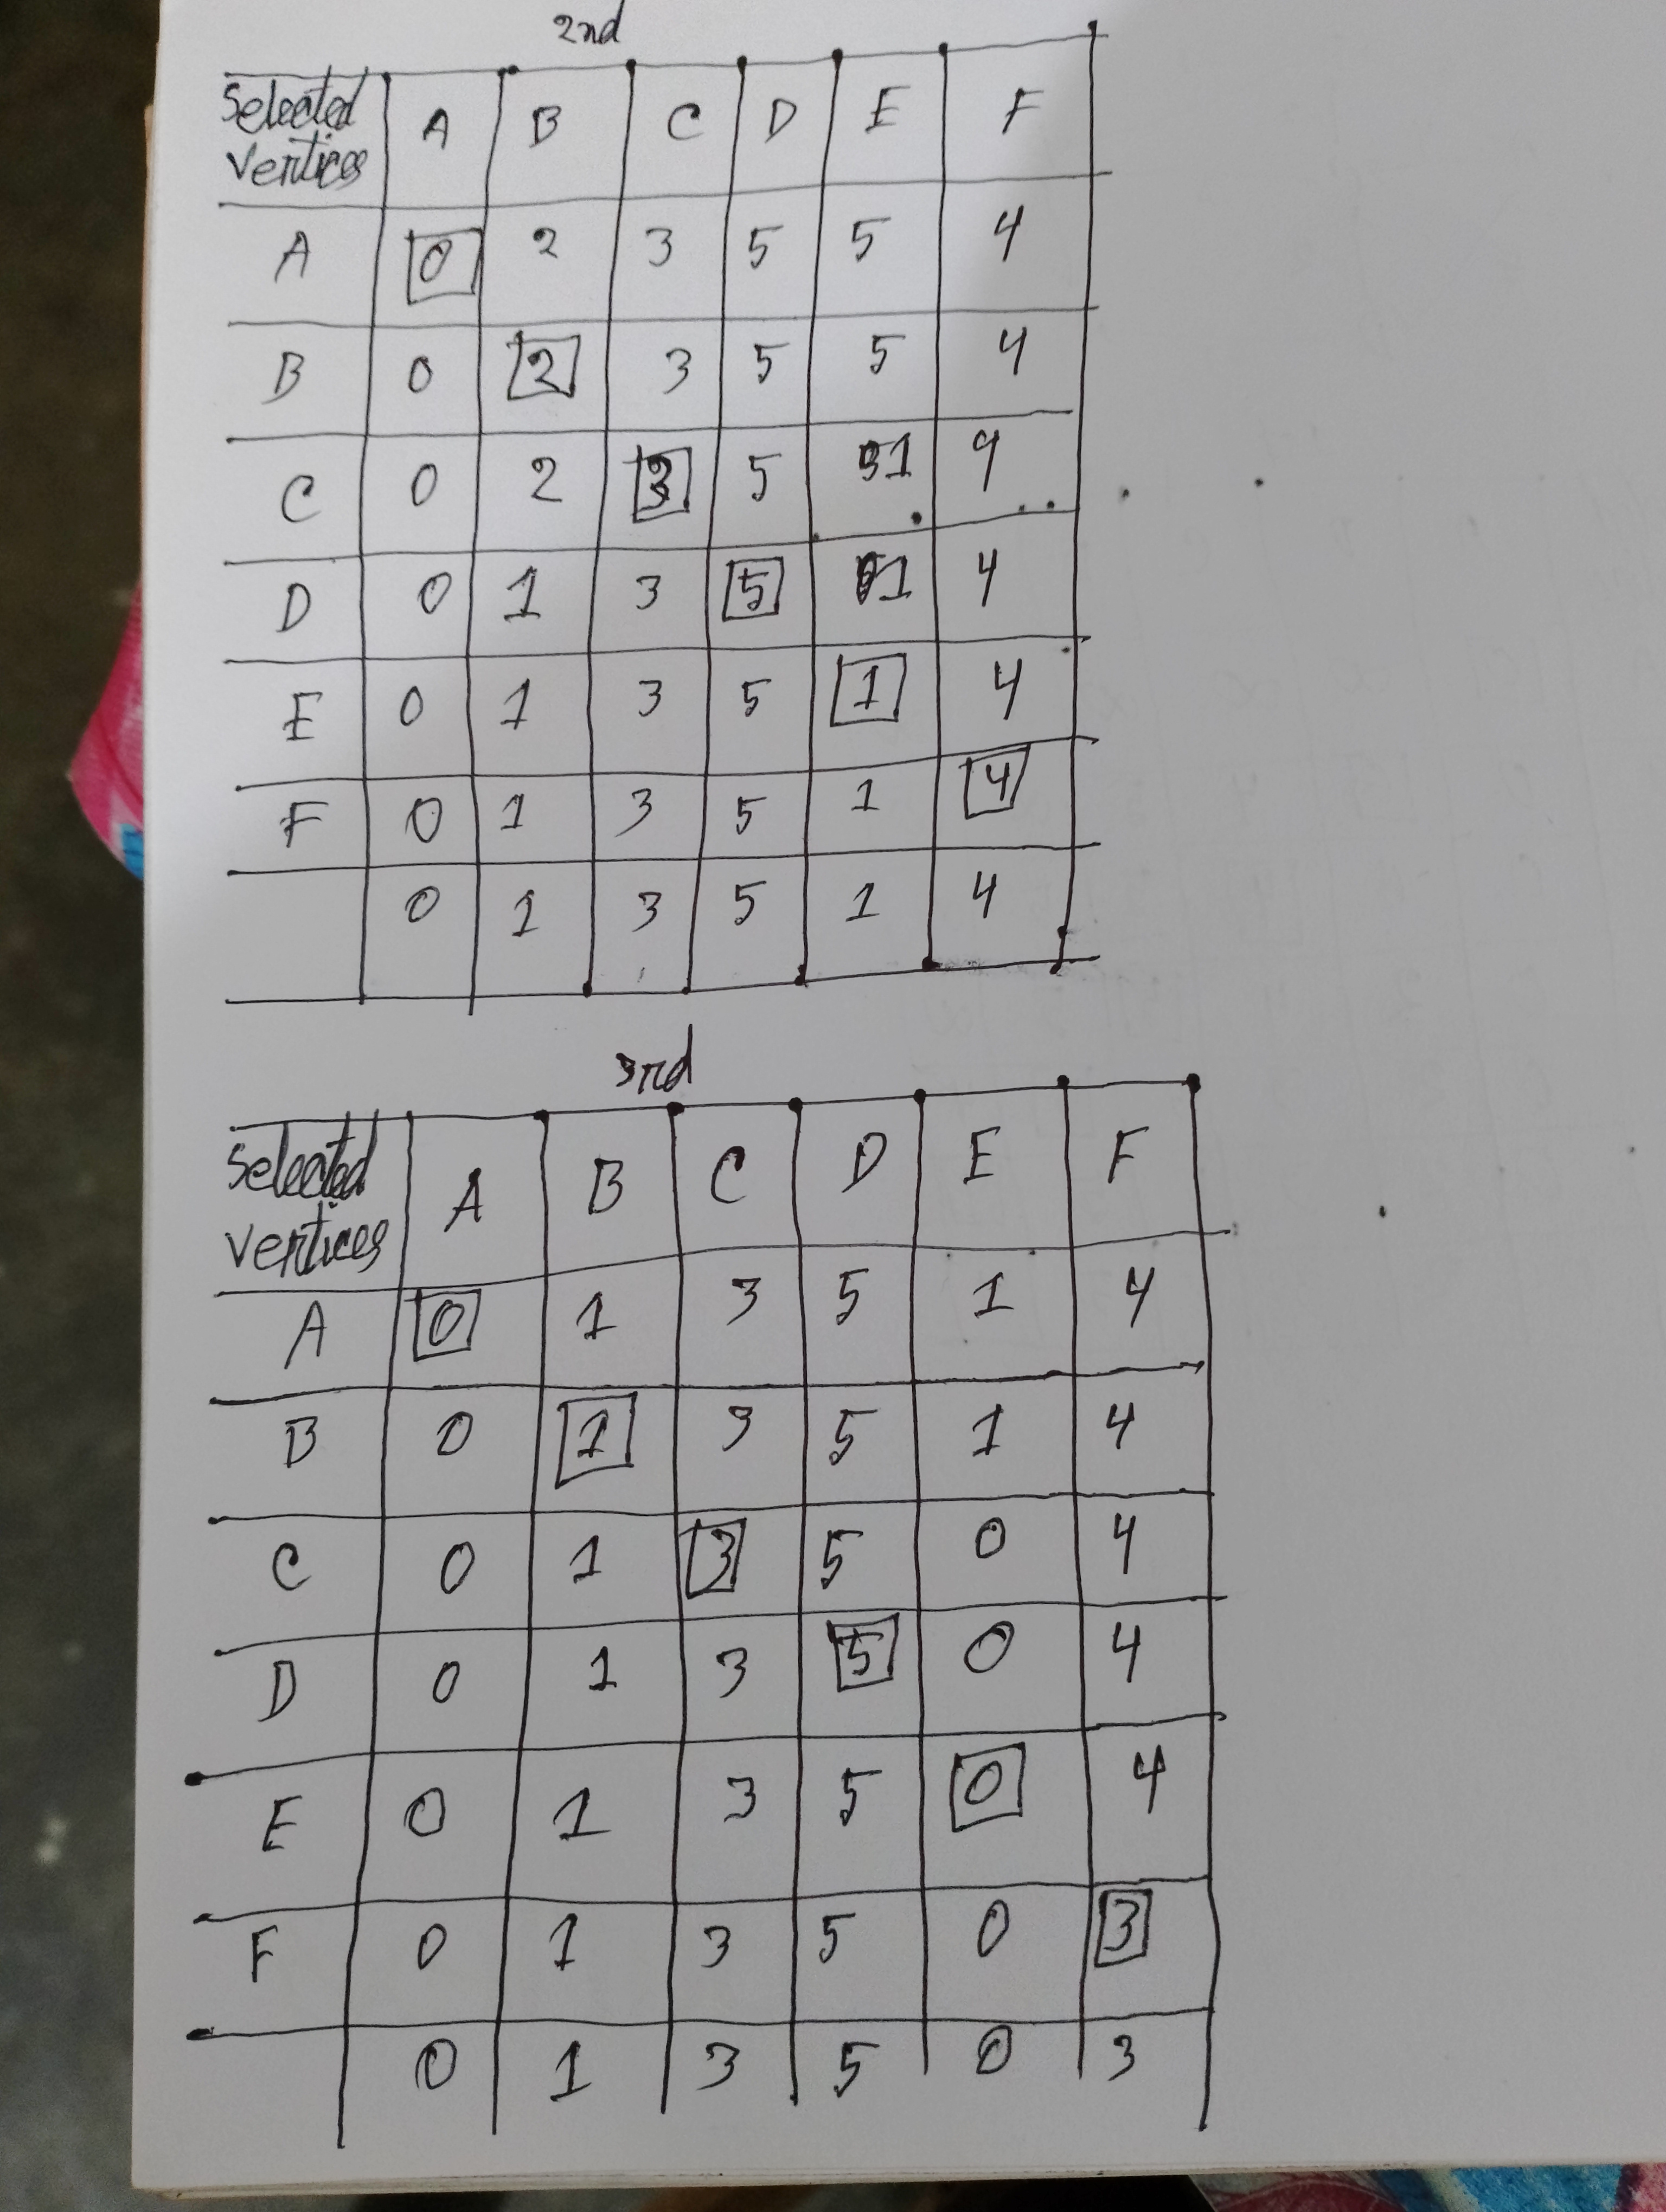 2nd
Selected vertices A B C D E F
A 0 2 3 5 5 4
B 0 2 3 5 5 4
C 0 2 3 5 1 4
D 0 1 3 5 1 4
E 0 1 3 5 1 4
F 0 1 3 5 1 4
0 1 3 5 1 4
3rd
Selected vertices A B C D E F
A 0 1 3 5 1 4
B 0 1 3 5 1 4
C 0 1 3 5 0 4
D 0 1 3 5 0 4
E 0 1 3 5 0 4
F 0 1 3 5 0 3
0 1 3 5 0 3